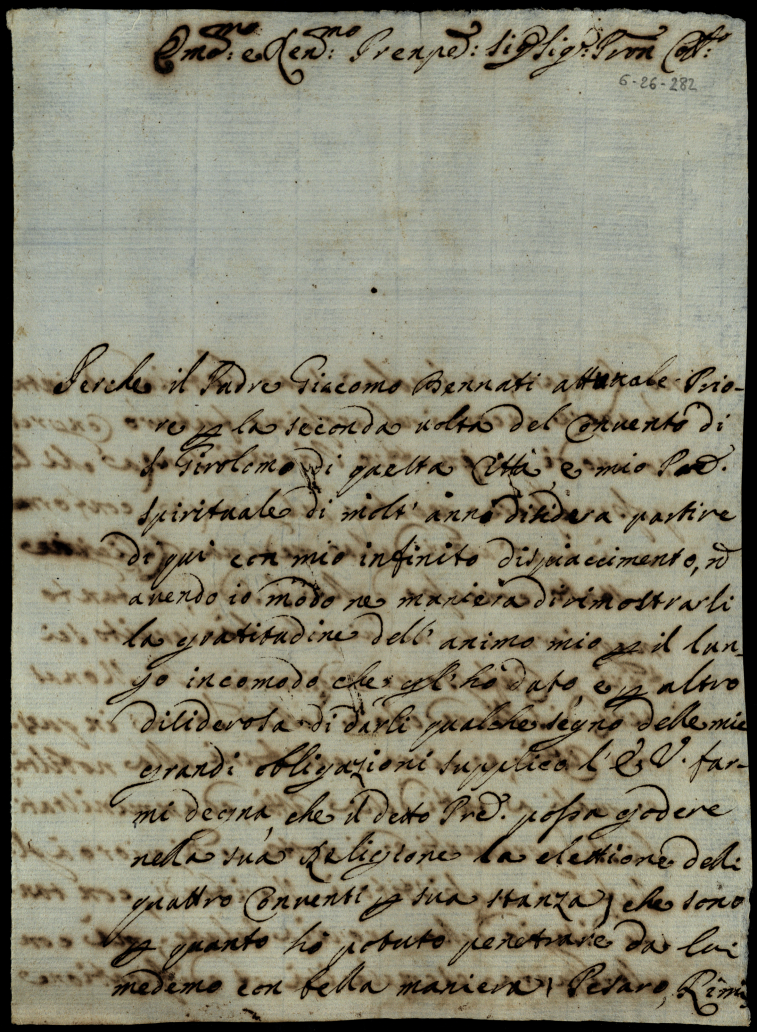 Em.mo: e Rev.mo: Prenpe: Sig.r Sig.r Pron Coll.mo:
6-26-282
Perche il Padre Giacomo Bennati attuale Prio-
re p la seconda volta del Convento di
S. Girolomo di questa Città, e mio Pad.
spirituale di molt' anno disidera partire
di qui con mio infinito dispiaccimento, nō
avendo io modo ne maniera di rimostrarli
la gratitudine dell' animo mio p il lun-
go incomodo che gl' ho dato, e p altro
disiderosa di darli qualche segno delle mie
grandi obligazioni supplico l' E. V. far-
mi degna, che il detto Pre. possa godere
nella sua Religione la elettione delli
quattro Conventi p sua stanza, che sono
p quanto hò potuto penetrare da lui
medemo con bella maniera, Pesaro, Rimi-